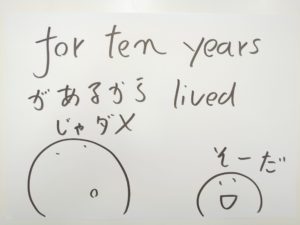 for ten years
があるから lived
じゃダメ
そーだ